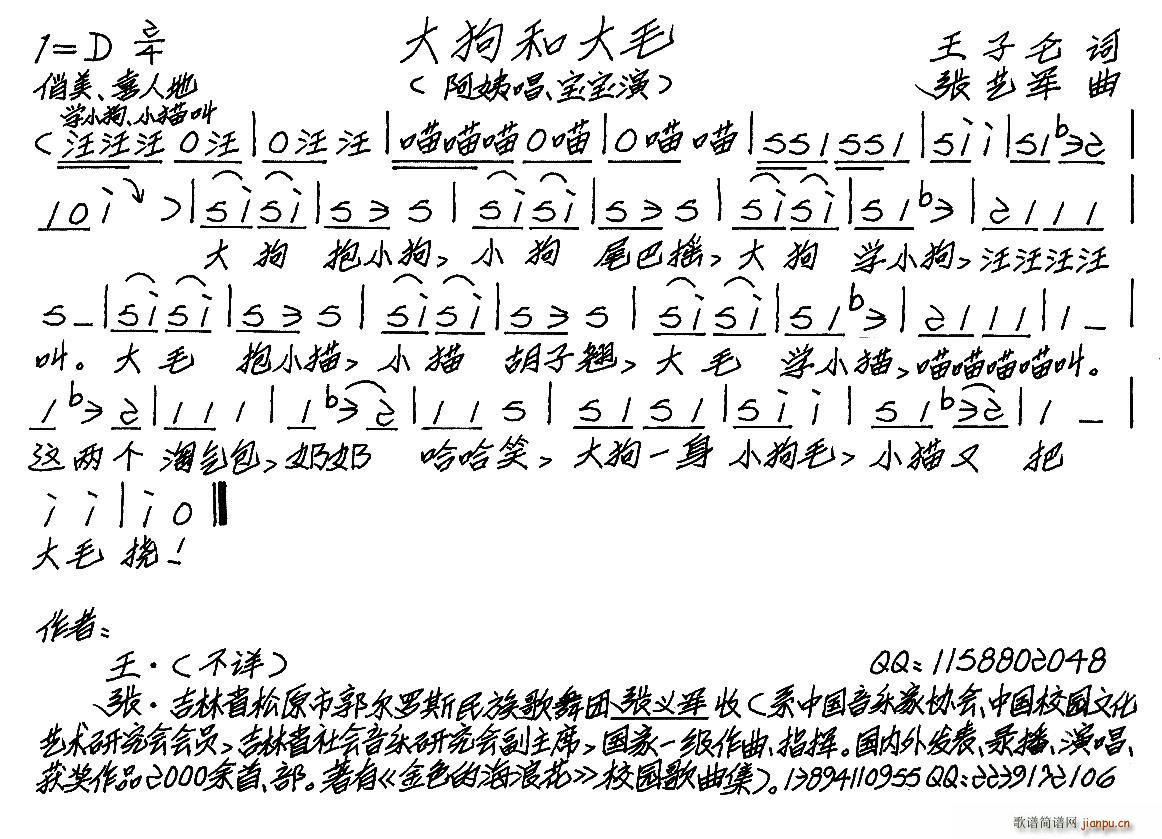 1=D 2/4 大狗和大毛 王子仑 词
俏美、喜人地 (阿姨唱、宝宝演) 张艺军 曲
学小狗、小猫叫
(汪汪汪 0汪|0汪汪|喵喵喵0喵|0喵喵|551551|5i i|51b32|
10i)|5i5i|535|5i5i|535|5i5i|51b3|2111|
大狗 抱小狗,小狗 尾巴摇,大狗 学小狗,汪汪汪汪
5-|5i5i|535|5i5i|535|5i5i|51b3|2111|1-|
叫。大毛 抱小猫,小猫 胡子翘,大毛 学小猫,喵喵喵喵叫。
1b32|111|1b32|115|5151|5i i|51b32|1-|
这两个 淘气包,奶奶 哈哈笑,大狗一身 小狗毛,小猫又 把
i i|i 0‖
大毛 挠!
作者:
王·(不详) QQ:1158802048
张·吉林省松原市郭尔罗斯民族歌舞团张义军收(系中国音乐家协会、中国校园文化
艺术研究会会员,吉林省社会音乐研究会副主席,国家一级作曲、指挥。国内外发表、录播、演唱、
获奖作品2000余首、部。著有《金色的海浪花》校园歌曲集)。13894110955 QQ:2239172106
歌谱简谱网
jianpu.cn